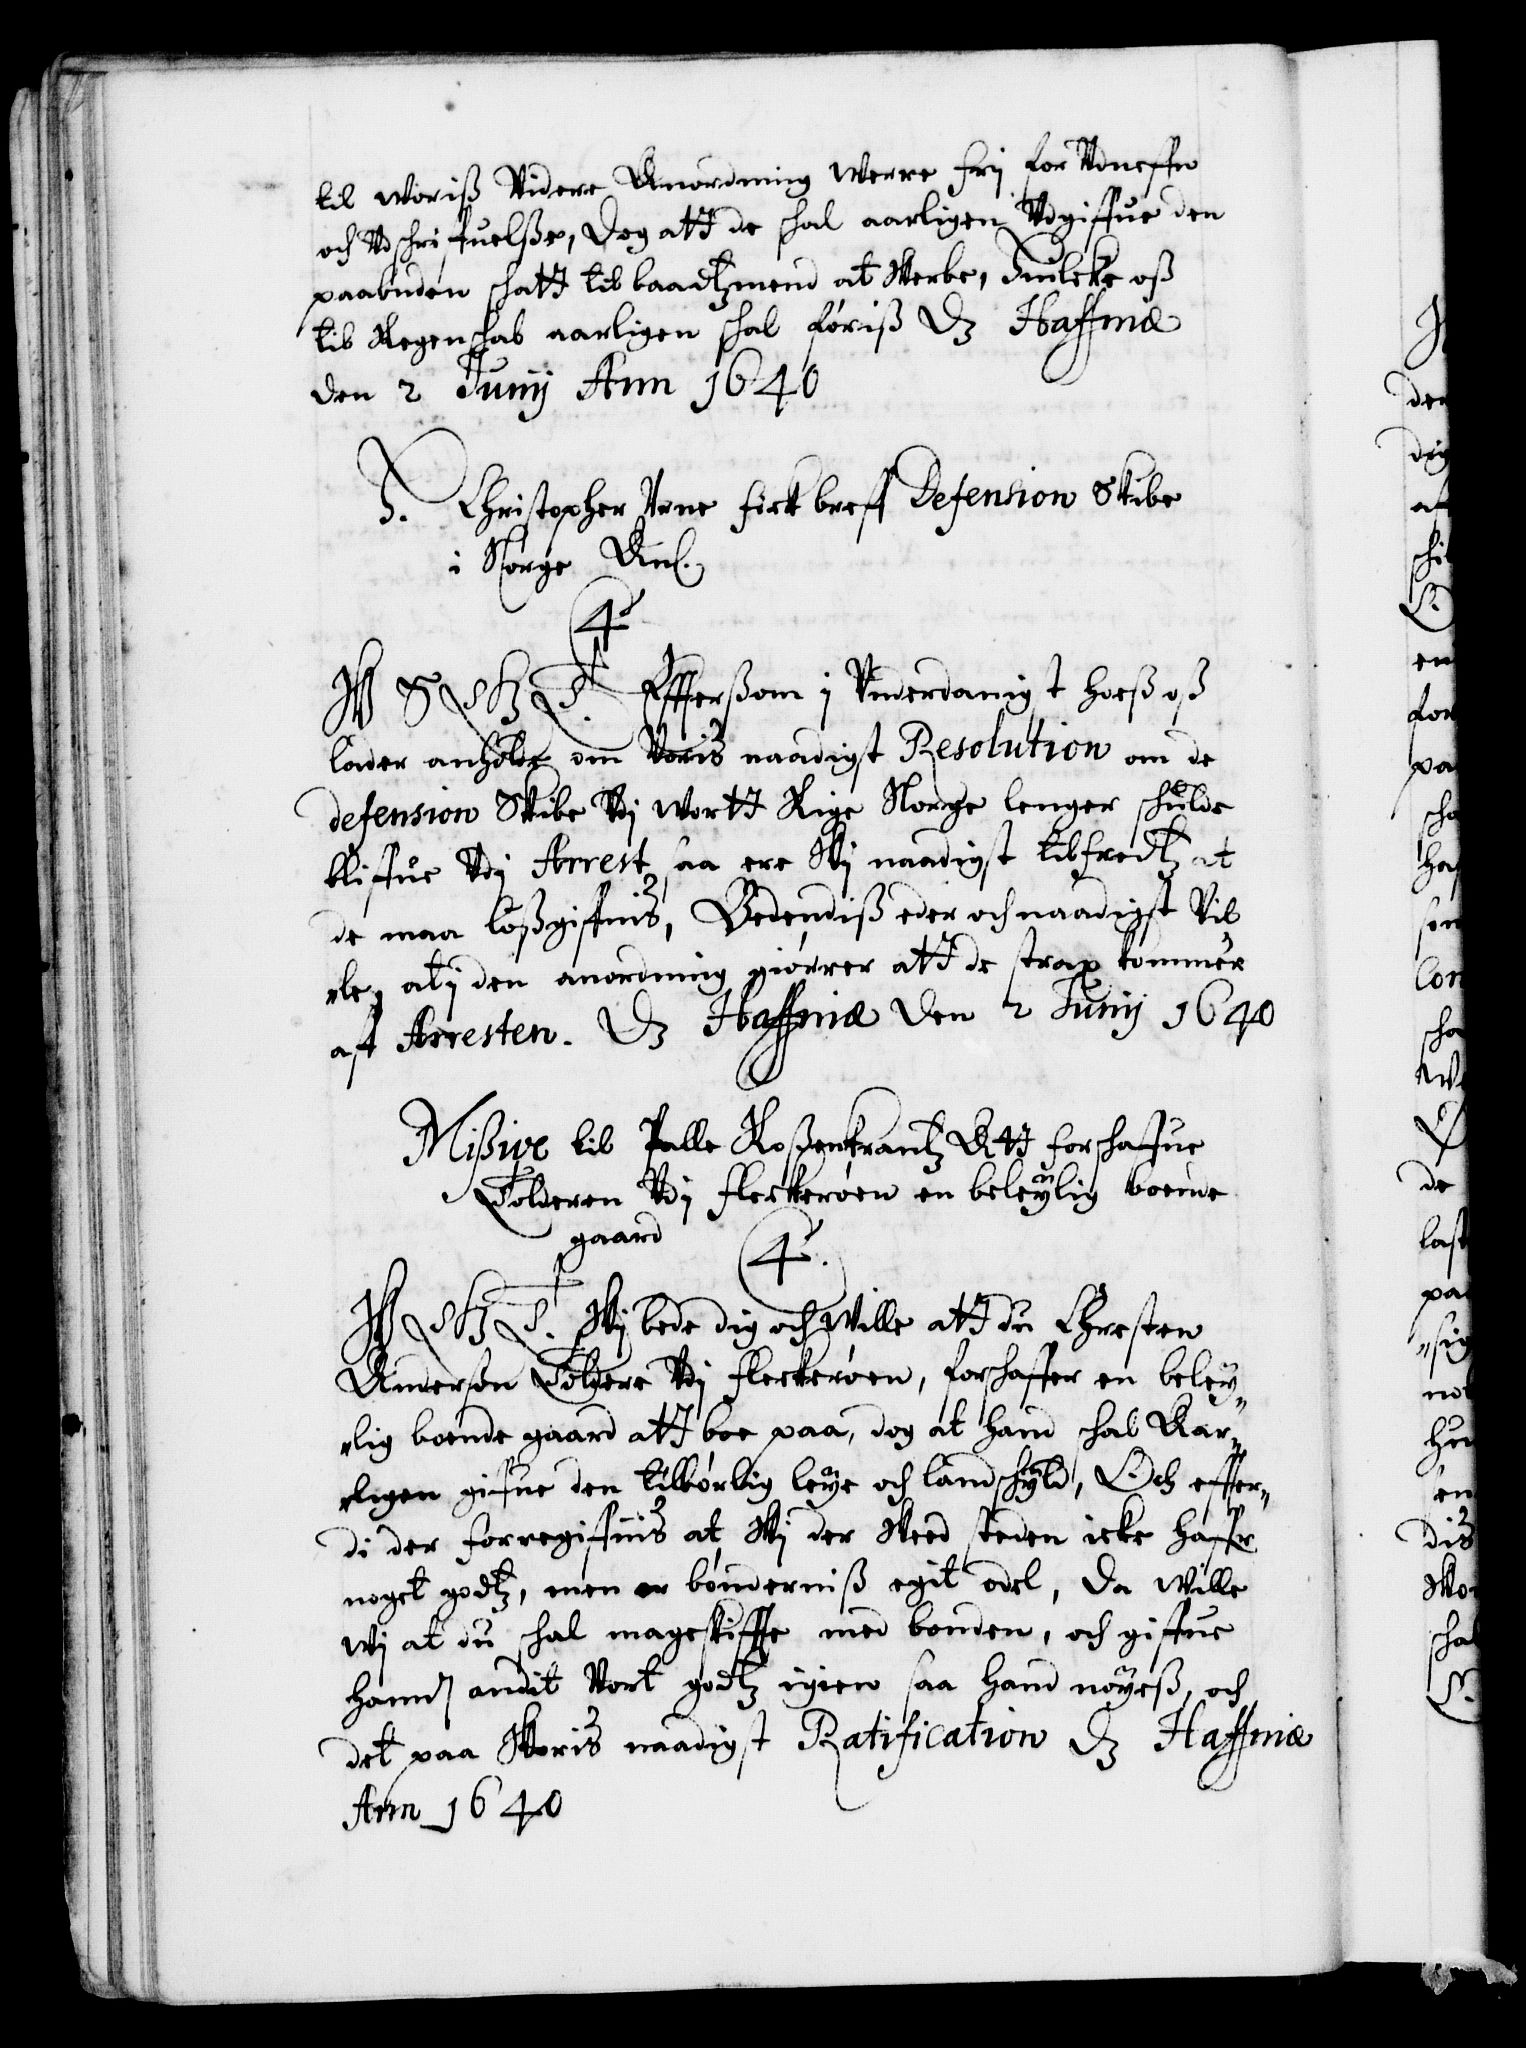 til woriß Videre Anordning werre frij for Vdneffn
och Vdschriffuelße, Dog att de schal aarligen Vdgiffue den
paabuden schatt til baadtzmend at Werbe, Huilcke oß
til Regenschab aarligen schal føriß Dz Haffniæ
den 2 Junij Ann 1640
H. Christopher Vrne fick breff Defension Skibe
i Norge Anl.
C4
W S G T Effterßom j Vnderdanigst hoeß oß
lader anholde om Voris naadigst Resolution om de
defension Skibe Vdj wortt Rige Norge lenger schulde
bliffue Vdj Arrest, saa ere Wj naadigst tilfredtz at
de maa løßgiffuis, Bedendiß eder och naadigst Vil
"le, at j den anordning giørrer att de strax kommer
aff Arresten. Dz Haffniæ den 2 Junij 1640
Mißive til Palle Roßenkrantz Att forschaffue
Tolderen Vdj fleckerøen en beleylig boende
gaard
C4.
W G T. Wj bede dig och Wille att du Chresten
Anderßøn Toldere Vdj fleckerøen, forschaffer en beley"
"lig boende gaard att boe paa, dog at hand schal Aar"
"ligen giffue den tilbørlig leye och landschyld, Och effter"
di der forregiffuis at Wj der Weed steden icke haffr
noget godtz, men er bønderniß egit odel, Da Wille
wj at du schal mageskiffte med bonden, och giffue
hannd andit Vort godtz igien saa hand nøyeß, och
det paa Woris naadigst Ratification Dz Haffniæ
Ann 1640